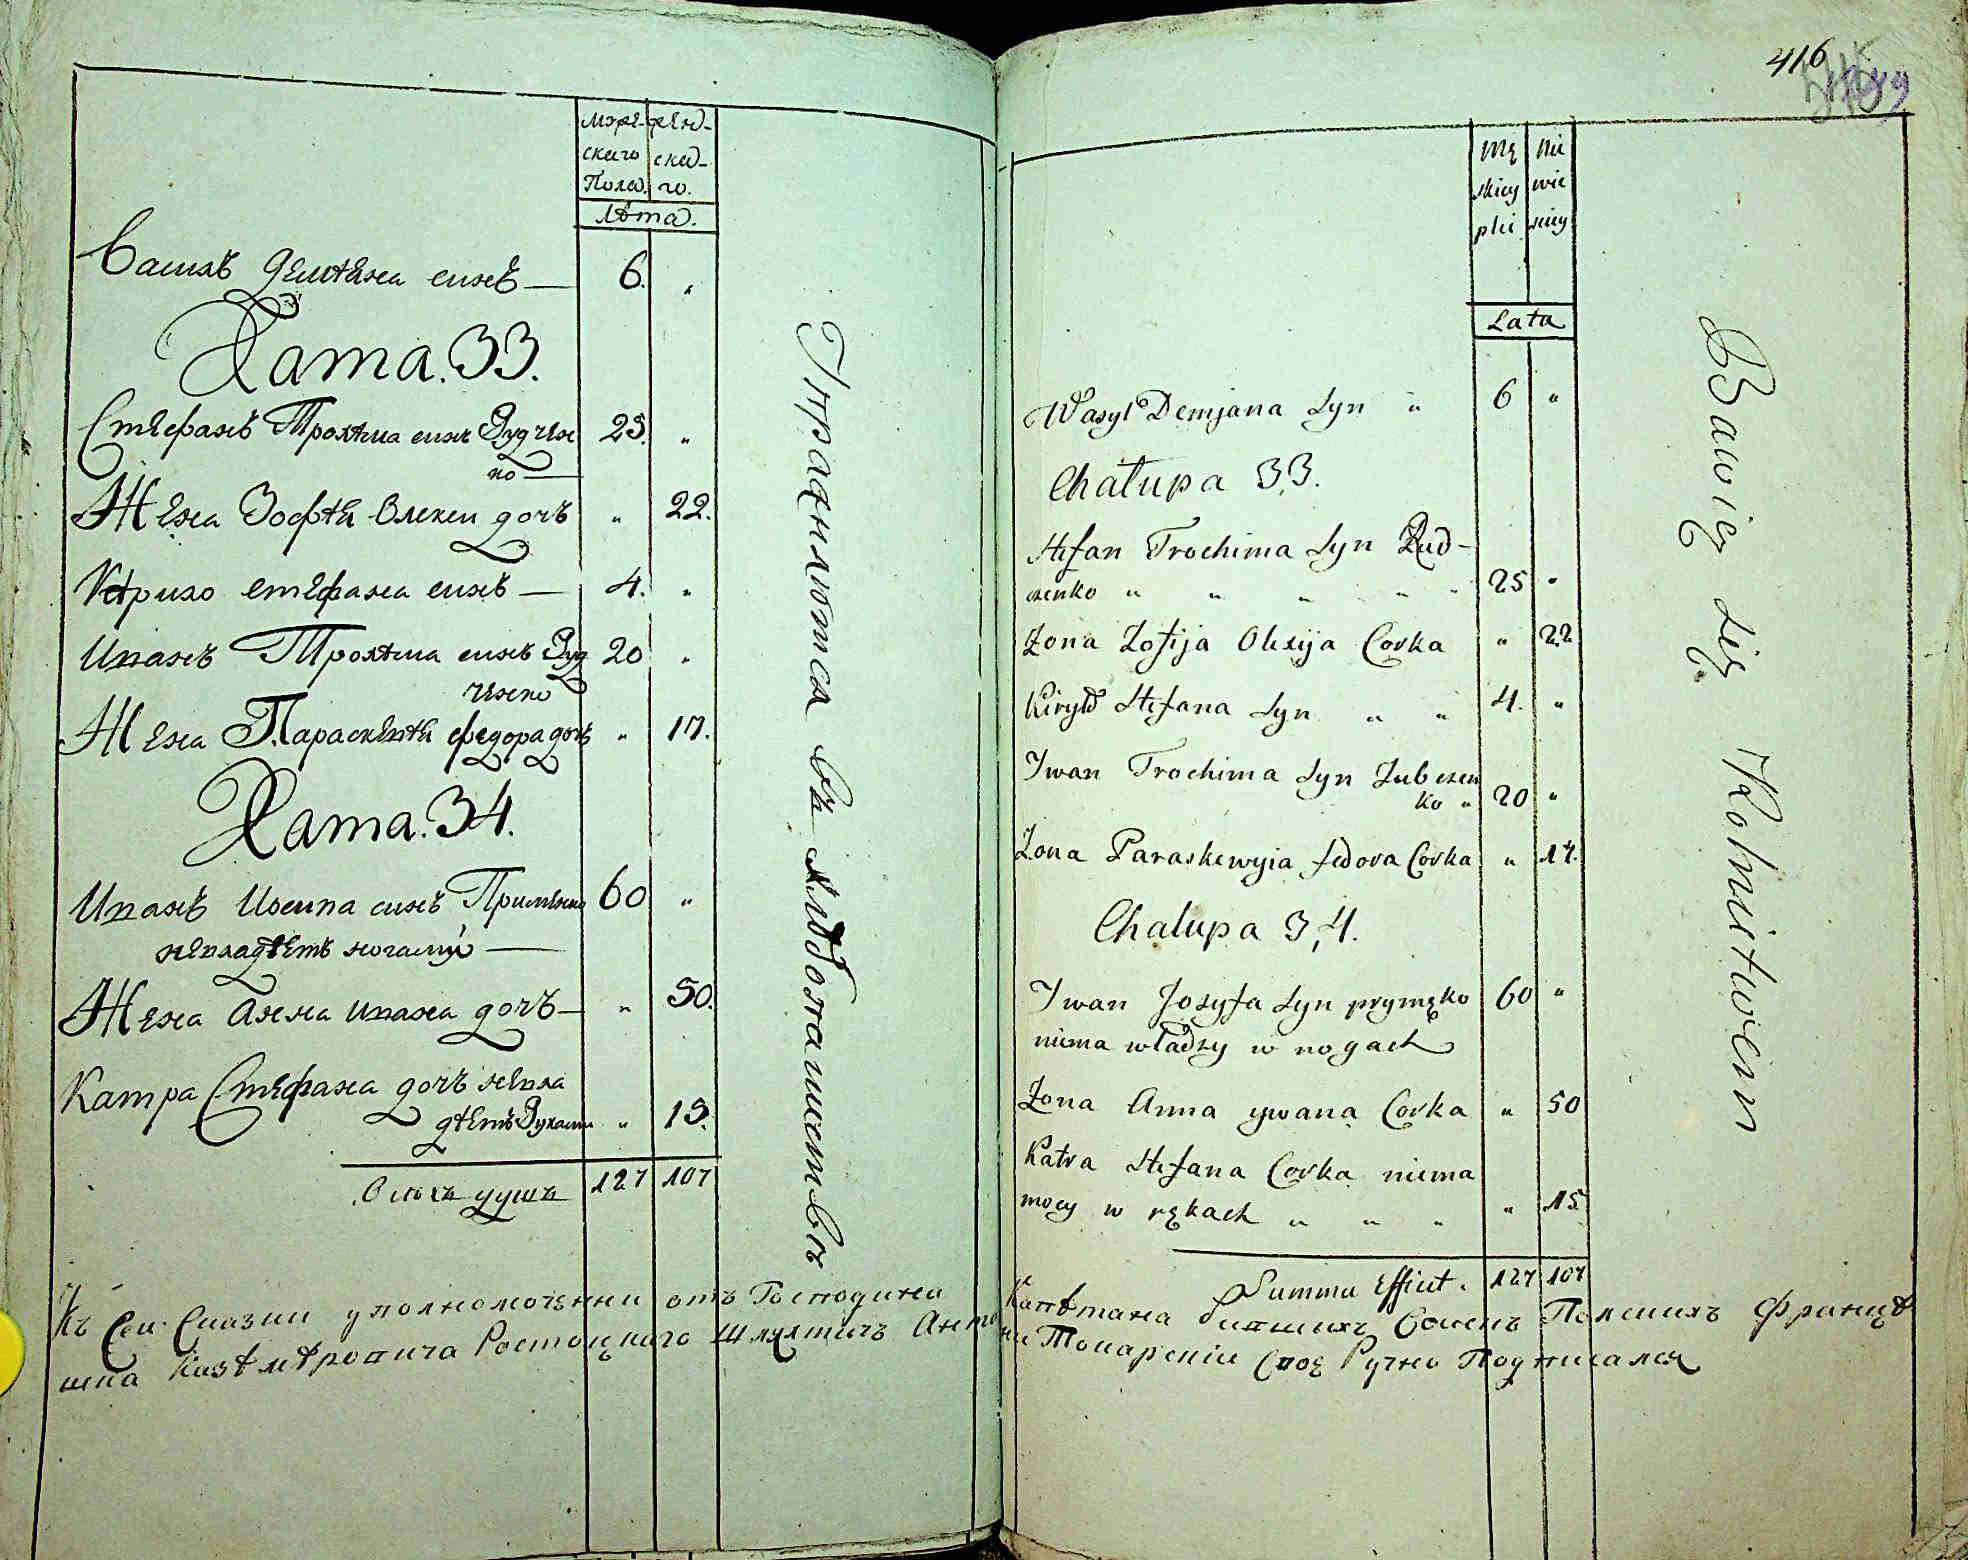 муже- женс-
скаго ска-
Пола. го.
Лѣта.
Василь Демияна синъ — 6. „
Хата. 33.
Стефанъ Трохима синъ Рудчен 25. „
ко —
Жена Зофия Олекси дочъ „ 22.
Кирило Стефана синъ — 4. „
Иванъ Трохима синъ Руд 20 „
ченко
Жена Параскевия федора дочъ „ 17.
Хата. 34.
Иванъ Иосипа синъ Примако 60 „
невладѣетъ ногами —
Жена Анна ивана дочъ — „ 50.
Катра Стефана дочъ невла
дѣетъ Руками „ 15.
Всѣхъ душъ 127 107
Упражняются въ хлѣбопашествѣ
416
Mę Nie
skiey wie
płci sciey
Lata
Wasyl Demjana Syn „ 6 „
Chałupa 33.
Stefan Trochima Syn Rud-
czenko „ „ „ „ „ 25 „
Zona Zofija Olexija Corka „ 22
Kiryło Stefana Syn „ „ 4. „
Iwan Trochima Syn Rudczen
ko „ 20 „
Zona Paraskewyia fedora Corka „ 17.
Chalupa 34.
Iwan Josyfa Syn prymako 60 „
niema władzy w nogach
Zona Anna ywana Corka „ 50
Katra Stefana Corka niema
mocy w rękach „ „ „ „ 15
Summa Efficit. 127 107
Bawię się Rolnictwem
Къ Сей Сказки уполномоченни отъ Господина Капѣтана бившихъ Воискъ Полскихъ Францѣ
шка Казѣмѣровича Ростоцкаго Шляхтичъ Антони Токарскій Своє Ручно Подписался